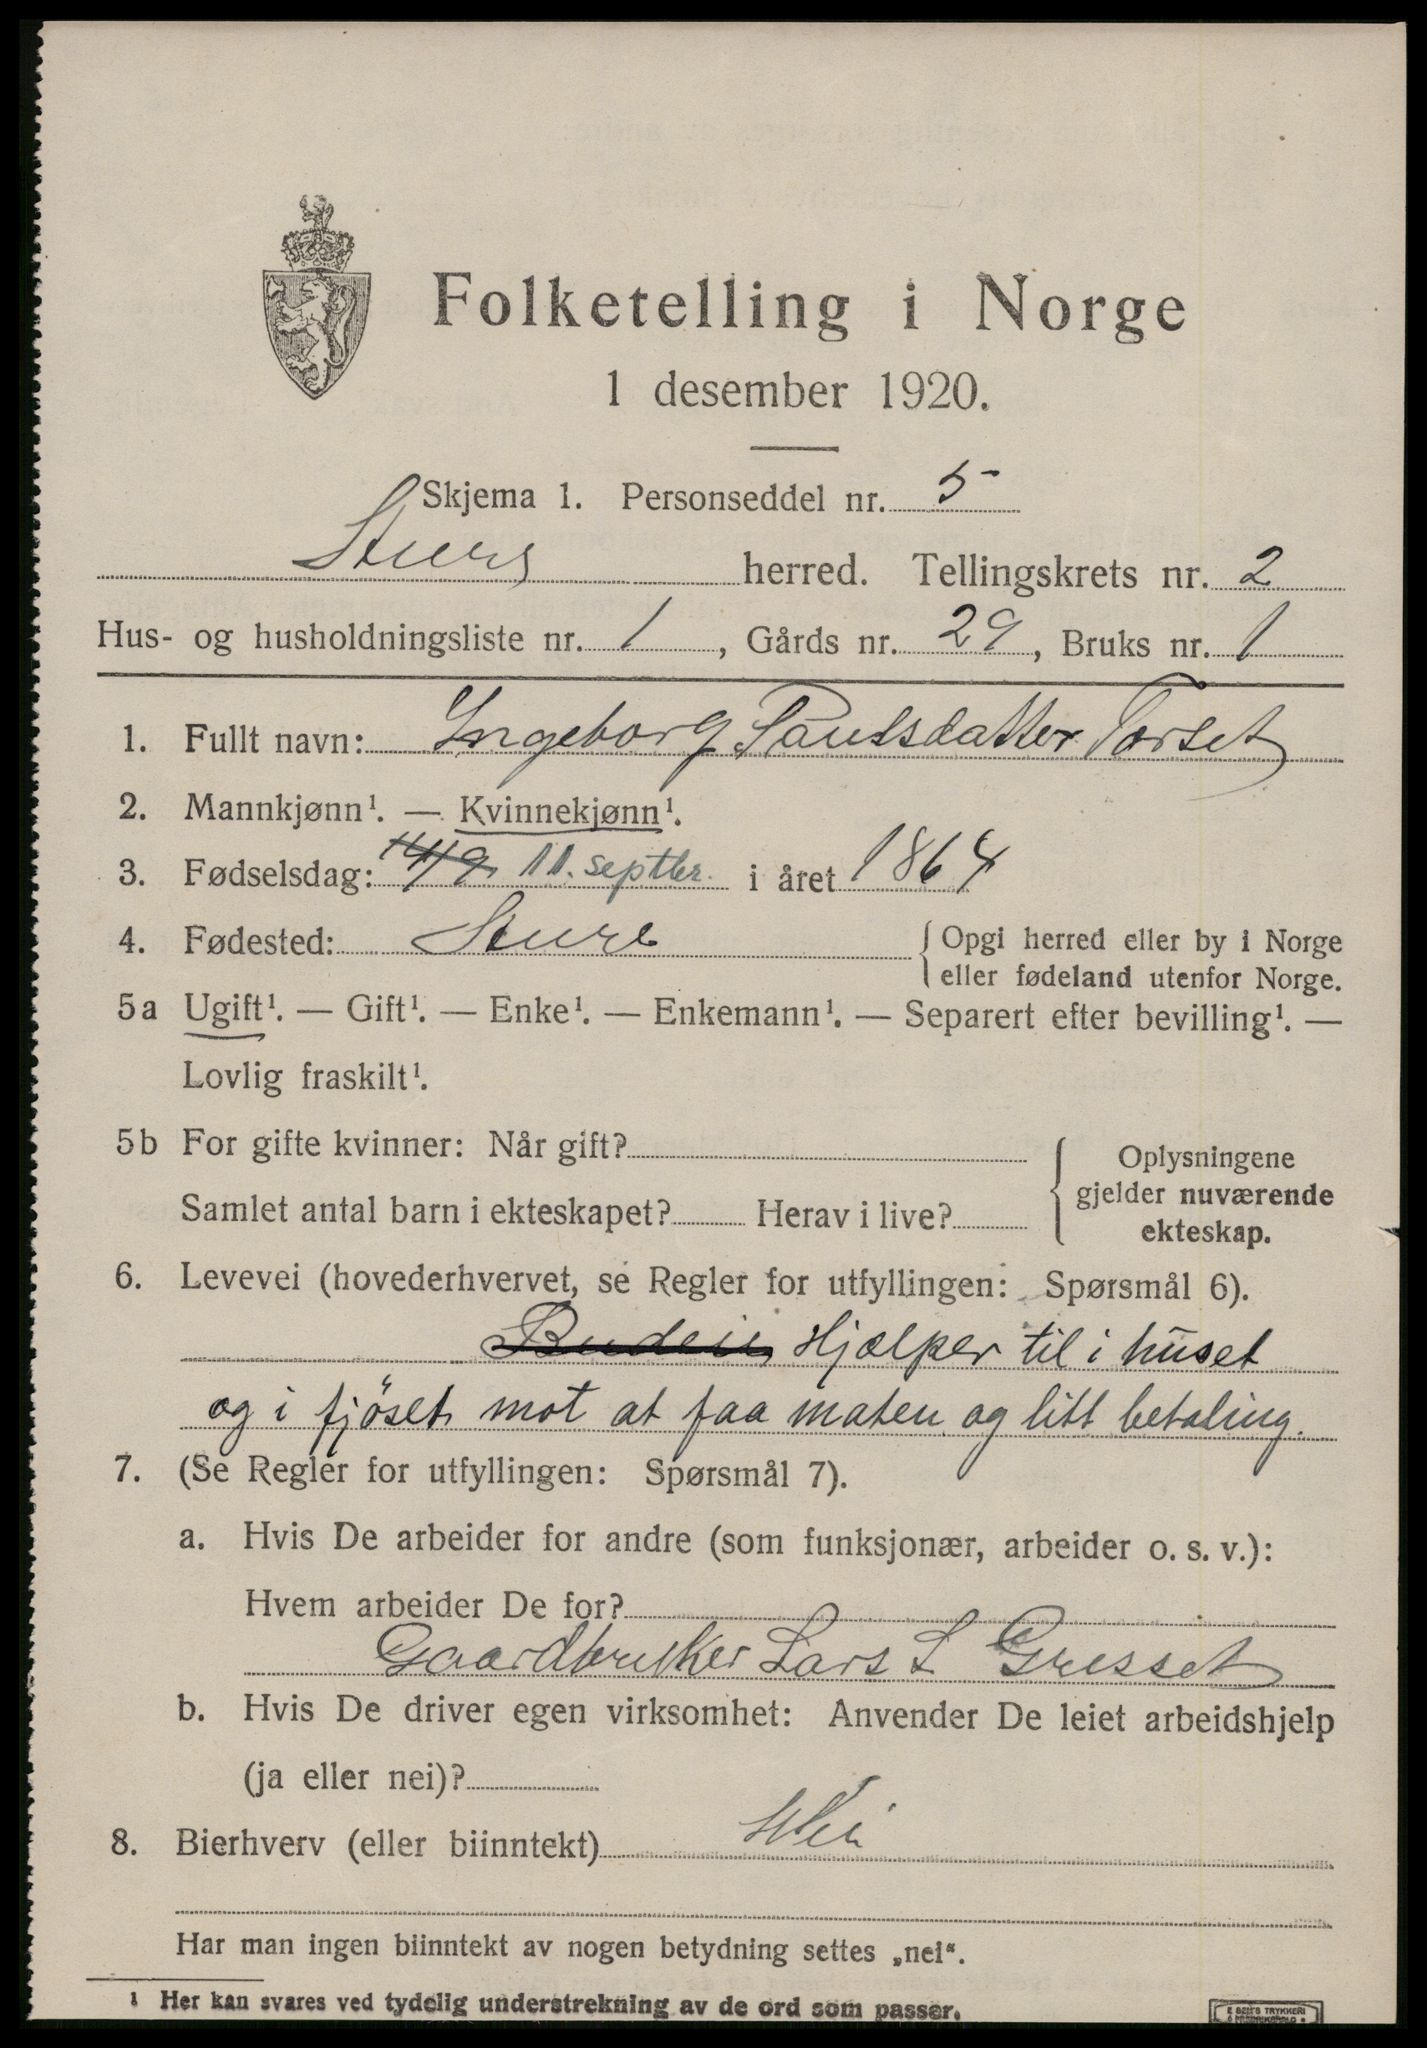 Folketelling i Norge
1 desember 1920.
Skjema 1. Personseddel nr. 5
Sture herred. Tellingskrets nr. 2
Hus- og husholdningsliste nr. 1, Gårds nr. 29, Bruks nr. 1
1. Fullt navn: Ingeborg Paulsdatter Torset
2. Mannkjønn¹. — Kvinnekjønn¹.
3. Fødselsdag: 11. septbr. i året 1864
4. Fødested: Sture { Opgi herred eller by i Norge
eller fødeland utenfor Norge.
5a Ugift¹. — Gift¹. — Enke¹. — Enkemann¹. — Separert efter bevilling¹. —
Lovlig fraskilt¹.
5b For gifte kvinner: Når gift? { Oplysningene
gjelder nuværende
ekteskap.
Samlet antal barn i ekteskapet? Herav i live?
6. Levevei (hovederhvervet, se Regler for utfyllingen: Spørsmål 6).
Budeie Hjælper til i huset
og i fjöset mot at faa maten og litt betaling.
7. (Se Regler for utfyllingen: Spørsmål 7).
a. Hvis De arbeider for andre (som funksjonær, arbeider o. s. v.):
Hvem arbeider De for?
Gaardbruker Lars L Gresset
b. Hvis De driver egen virksomhet: Anvender De leiet arbeidshjelp
(ja eller nei)?
8. Bierhverv (eller biinntekt) Nei
Har man ingen biinntekt av nogen betydning settes „nei“.
¹ Her kan svares ved tydelig understrekning av de ord som passer.